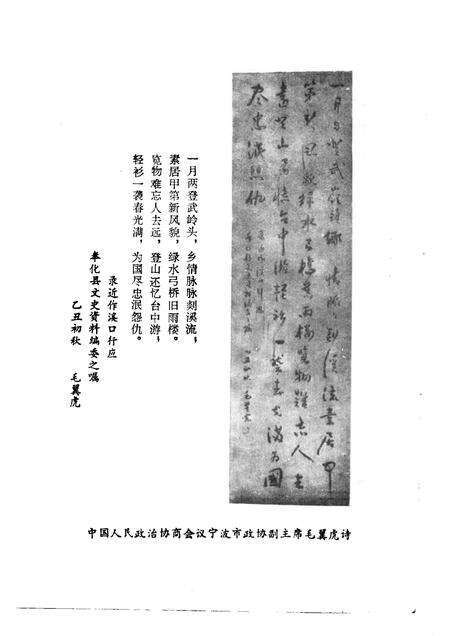 一月两登武岭头乡情脉脉剡溪流素居甲
第新风貌绿水弓桥旧雨楼览物难忘人去
远登山还忆台中游轻衫一袭春光满为国
尽忠泯怨仇
一月两登武岭头，乡情脉脉剡溪流，
素居甲第新风貌，绿水弓桥旧雨楼。
览物难忘人去远，登山还忆台中游，
轻衫一袭春光满，为国尽忠泯怨仇。
录近作溪口什应
奉化县文史资料编委之嘱
乙丑初秋 毛翼虎
中国人民政治协商会议宁波市政协副主席毛翼虎诗